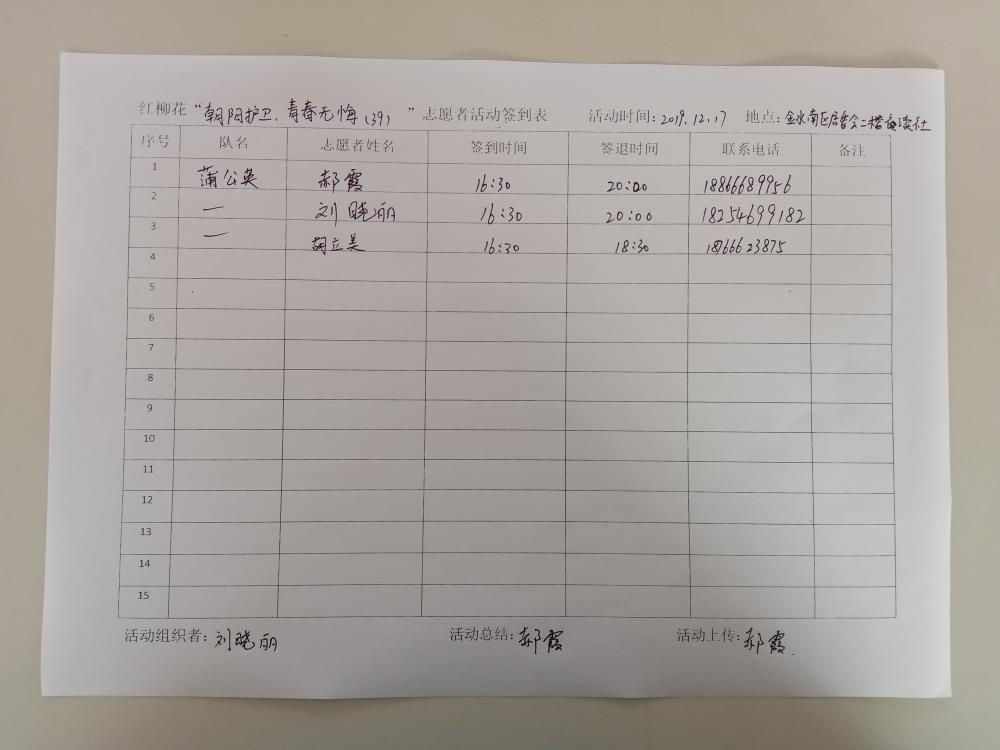 红柳花“朝阳护卫、青春无悔(39)”志愿者活动签到表 活动时间:2019.12.17 地点:金水南区居委会二楼
序号 队名 志愿者姓名 签到时间 签退时间 联系电话 备注
1 蒲公英 郝霞 16:30 20:00 18866689956
2 一 刘晓丽 16:30 20:00 18254699182
3 一 胡立美 16:30 18:30 18766623875
4
5
6
7
8
9
10
11
12
13
14
15
活动组织者:刘晓丽 活动总结:郝霞 活动上传:郝霞.